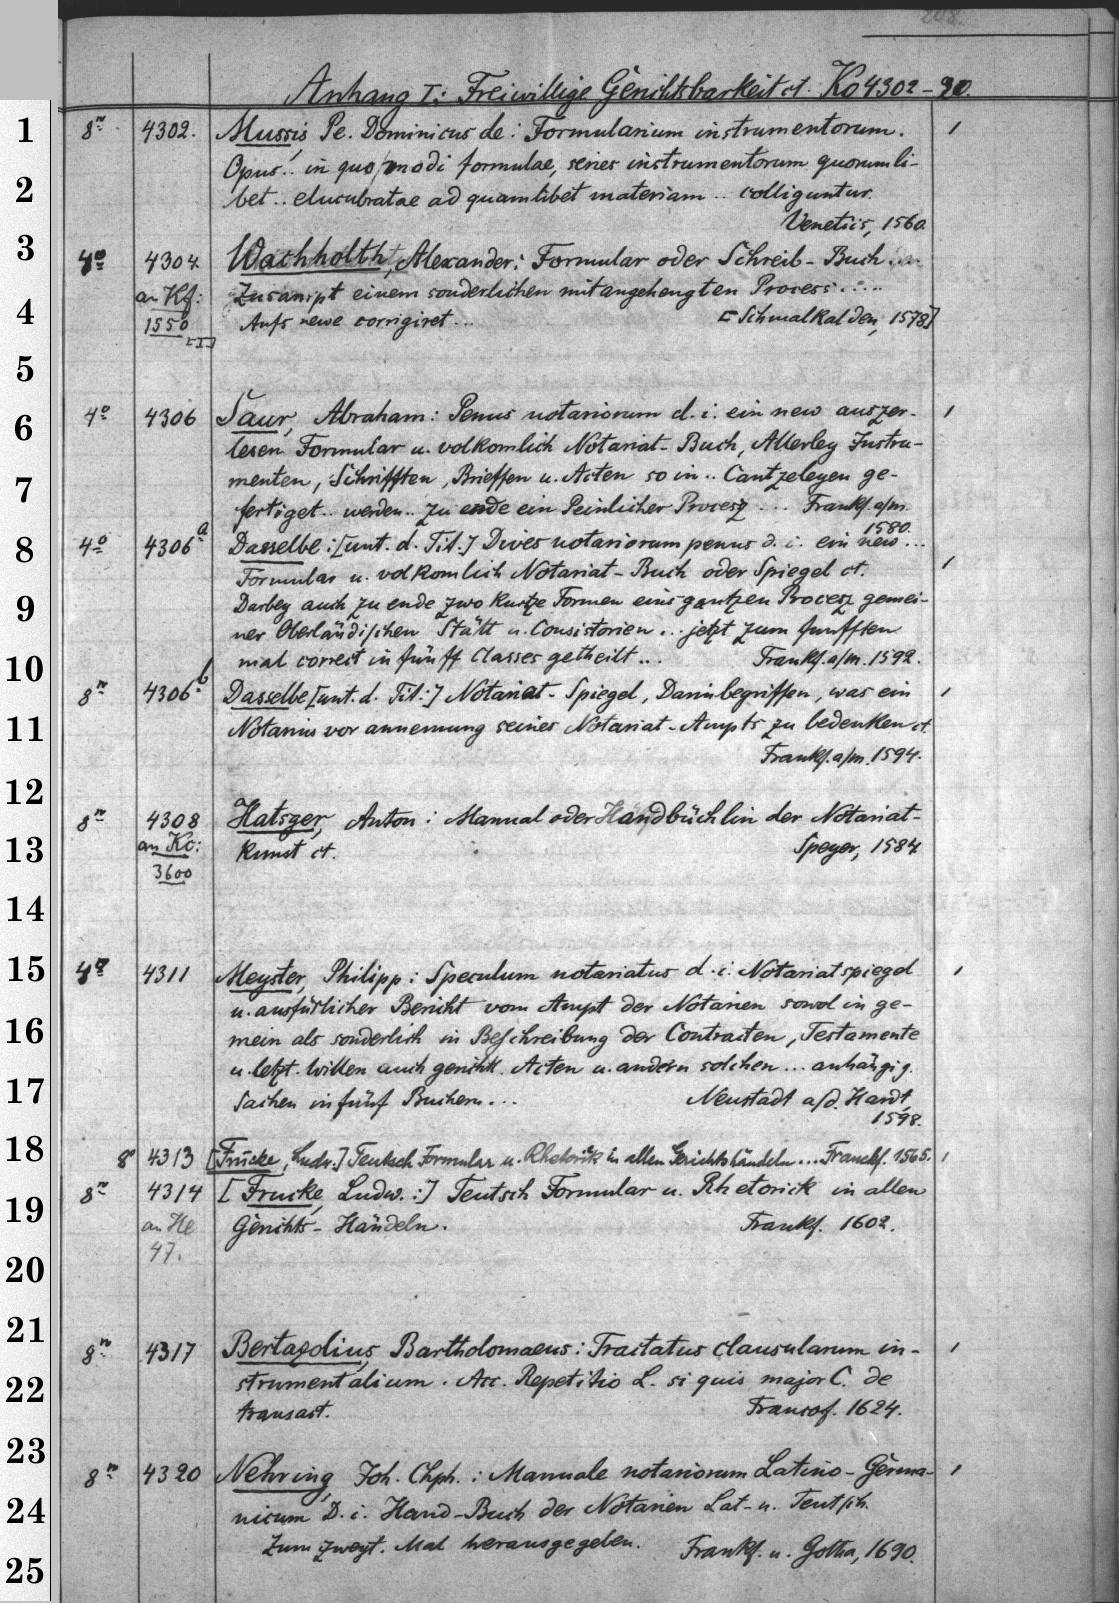 208.
Anhang I: Freiwillige Gerichtsbarkeit ct. Ko 4302-20.
1 8º 4302. Mussis Pe. Dominicus de: Formularium instrumentorum. 1
Opus.. in quo modi formulae, series instrumentorum quorumli-
2 bet.. elucubratae ad quamlibet materiam .. colliguntur.
Venetiis, 1560.
3 4º 4304 Wachholth, Alexander: Formular oder Schreib-Buch
an Kf: Zusampt einem sonderlichen mitangehengten Process.....
4 1550 Aufs newe corrigiret... [Schmalkalden, 1578]
[I]
5
6 4º 4306 Saur, Abraham: Penus notariorum d. i. ein new auszer- 1
lesen Formular u. volkomlich Notariat-Buch, Allerley Instru-
7 menten, Schrifften, Brieffen u. Acten so in .. Cantzeleyen ge-
fertiget.. werden.. zu ende ein Peinlicher Procesz ... Frankf. a/m.
1580.
8 4º 4306a Dasselbe: [unt. d. Tit.] Dives notariorum penus d. i. ein new...
Formular u. volkomlich Notariat-Buch oder Spiegel ct. 1
9 Darbey auch zu ende zwo kurtze Formen eins gantzen Procesz gemei-
ner Oberländischen Stätt u. Consistorien... jetzt zum funfften
10 mal correct in fünff Classes getheilt... Frankf. a/m. 1592.
8º 4306b Dasselbe [unt. d. Tit.:] Notariat-Spiegel, Darin begriffen, was ein 1
11 Notarius vor annemung seines Notariat-Ampts zu bedenken ct.
Frankf. a/m. 1594.
12
8º 4308 Hatsger, Anton: Manual oder Handbüchlin der Notariat-
13 an Ko: kunst ct. Speyer, 1584
3600
14
15 4º 4311 Meyster, Philipp: Speculum notariatus d. i. Notariatspiegel 1
u. ausfürlicher Bericht vom Ampt der Notarien sowol in ge-
16 mein als sonderlich in Beschreibung der Contracten, Testamente
u. letzt. Willen auch gerichtl. Acten u. andern solchen... anhängig.
17 Sachen in fünf Buchern... Neustadt a/d. Hardt,
1598.
18 8º 4313 [Frucke, Ludw.:] Teutsch Formular u. Rhetorik in allen Gerichtshändeln... Franckf. 1565. 1
8º 4314 [Frucke, Ludw.:] Teutsch Formular u. Rhetorick in allen
19 an He Gerichts-Händeln. Frankf. 1602.
47.
20
21
8º 4317 Bertazolius, Bartholomaeus: Tractatus clausularum in- 1
22 strumentalium. Acc. Repetitio L. si quis major C. de
transact. Francof. 1624.
23
8º 4320 Nehring, Joh. Chph.: Manuale notariorum Latino-Germa- 1
24 nicum D. i. Hand-Buch der Notarien Lat- u. Teutsch.
Zum zweyt. Mal herausgegeben. Frankf. u. Gotha, 1690.
25